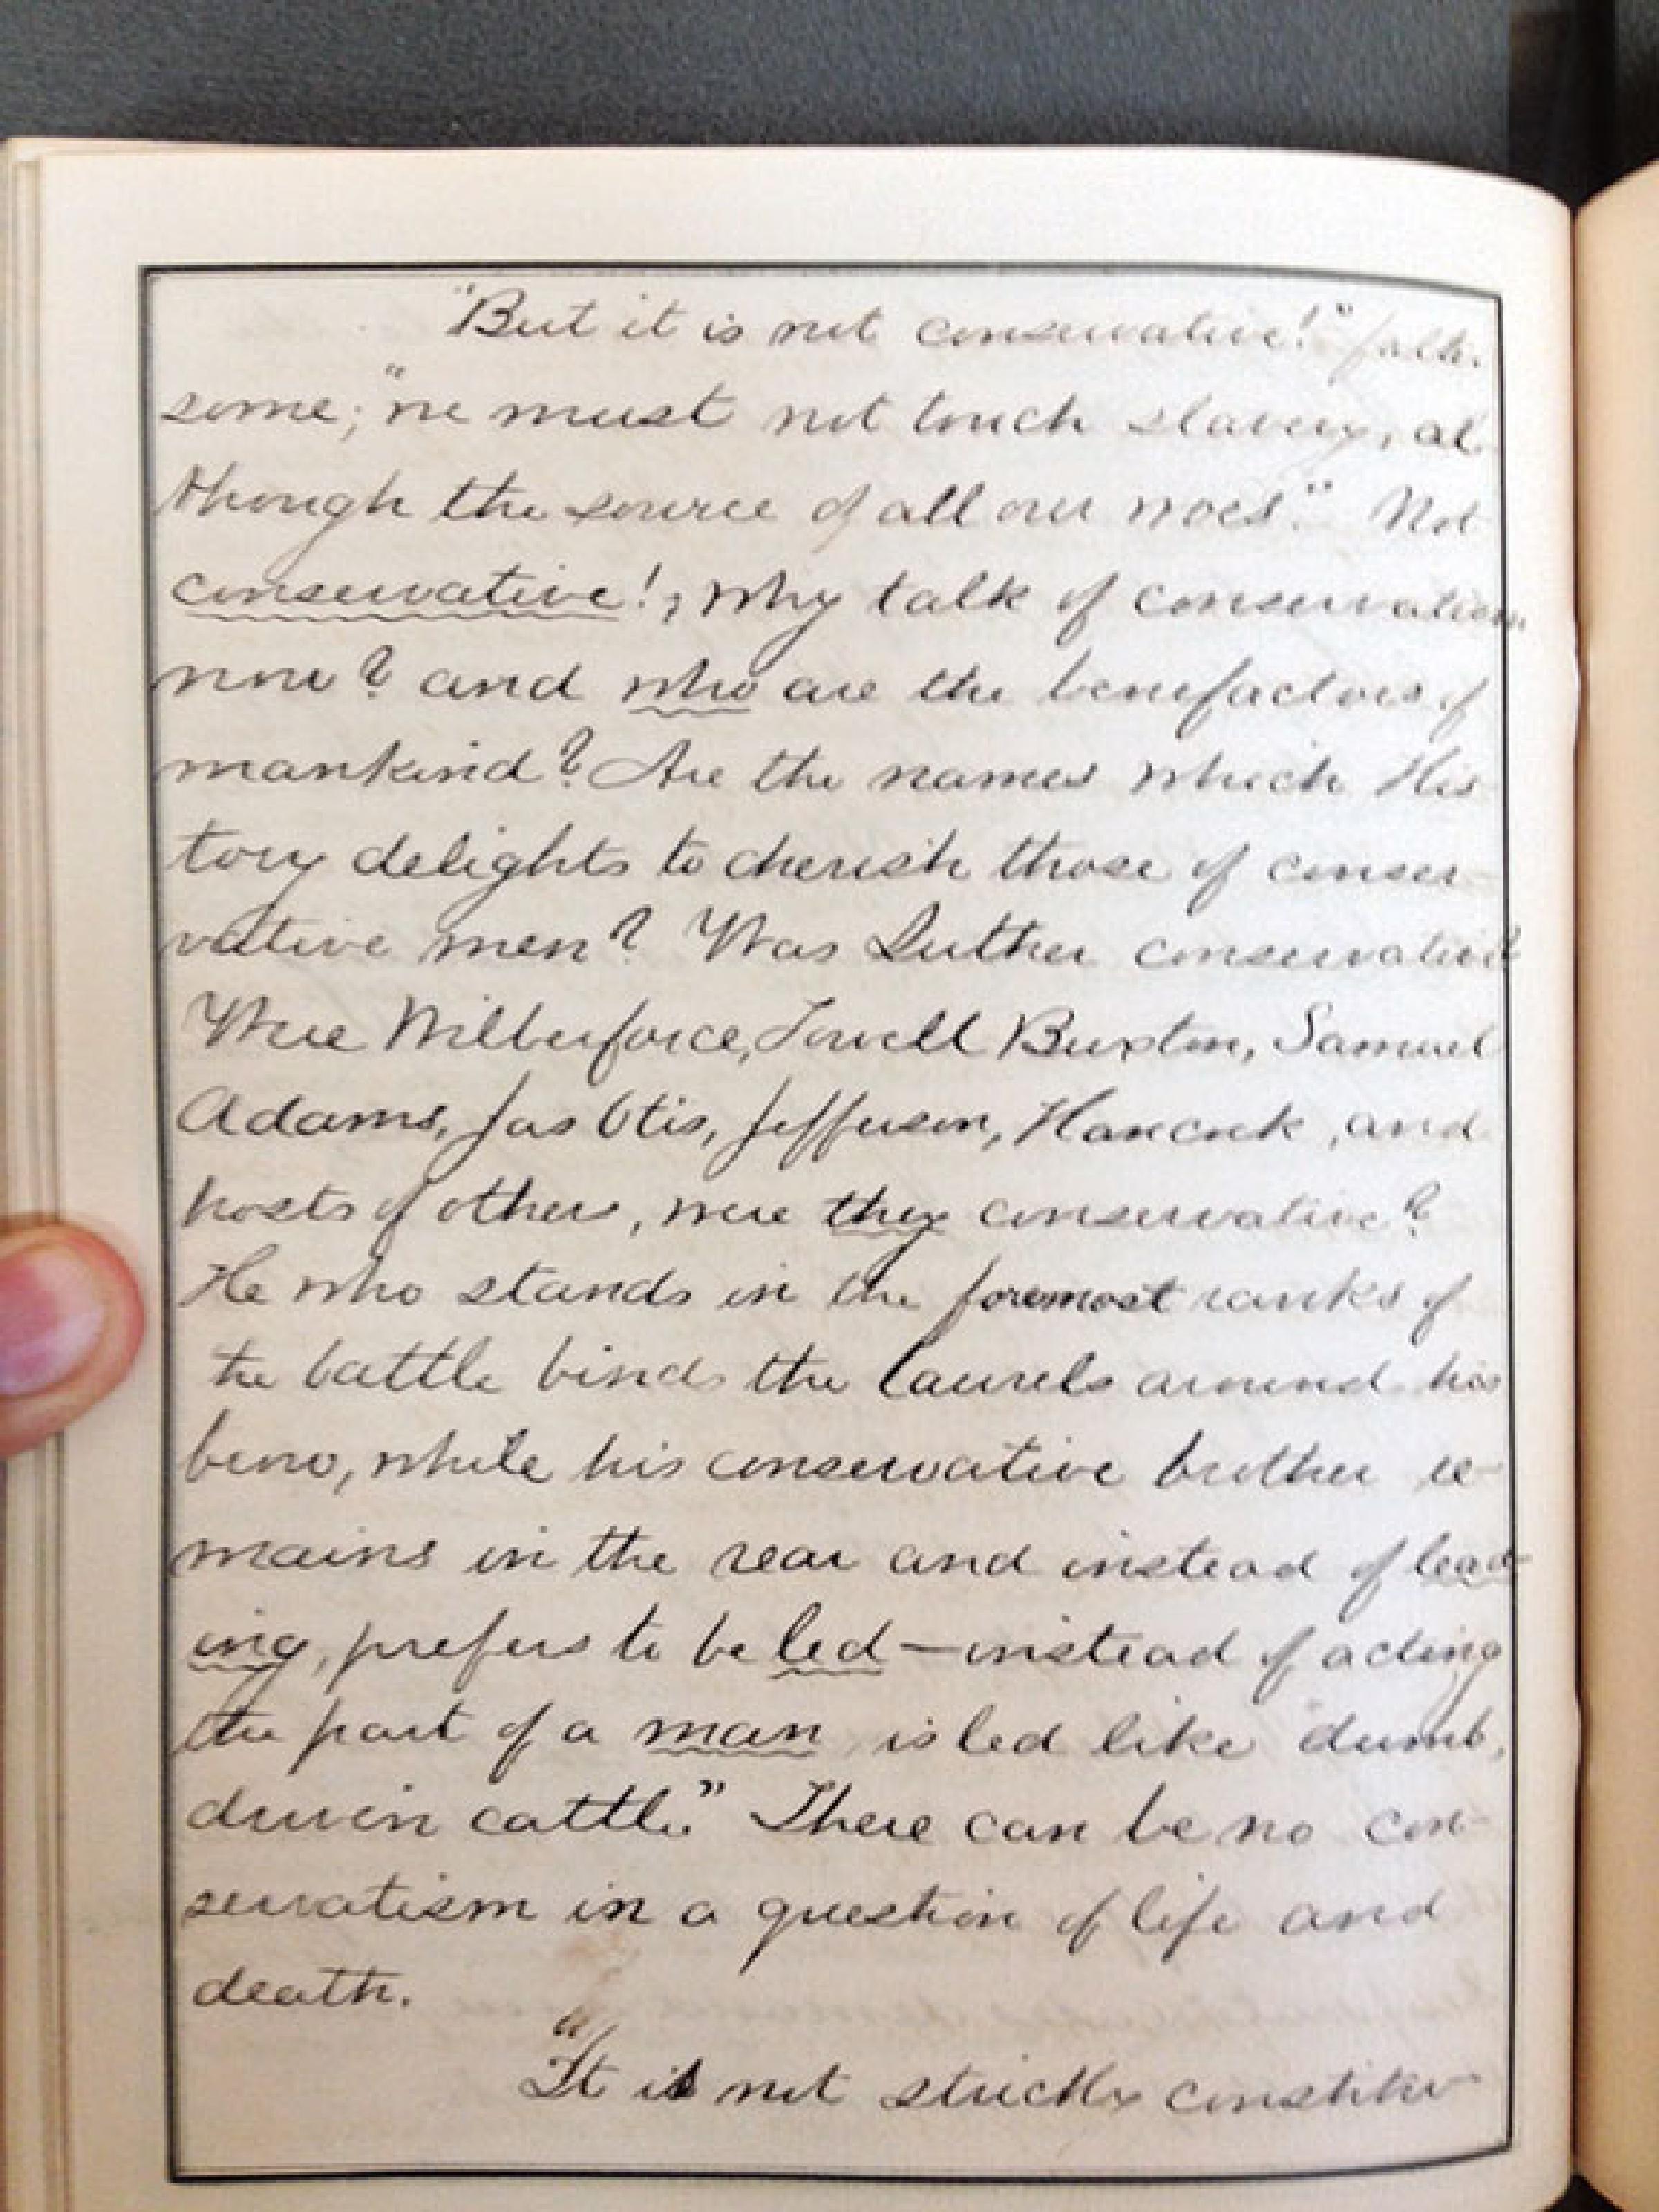 "But it is not conservative!" talk
some; "we must not touch slavery, al
though the source of all our woes." Not
conservative!, why talk of conservatism
now? and who are the benefactors of
mankind? Are the names which His
tory delights to cherish those of conser-
vative men? Was Luther conservative?
Were Wilberforce, Fowell Buxton, Samuel
Adams, Jas Otis, Jefferson, Hancock, and
hosts of others, were they conservative?
He who stands in the foremost ranks of
the battle binds the laurels around his
brow, while his conservative brother re-
mains in the rear and instead of lead-
ing, prefers to be led — instead of acting
the part of a man is led like "dumb,
driven cattle." There can be no con-
servatism in a question of life and
death.
"It is not strictly constitu-